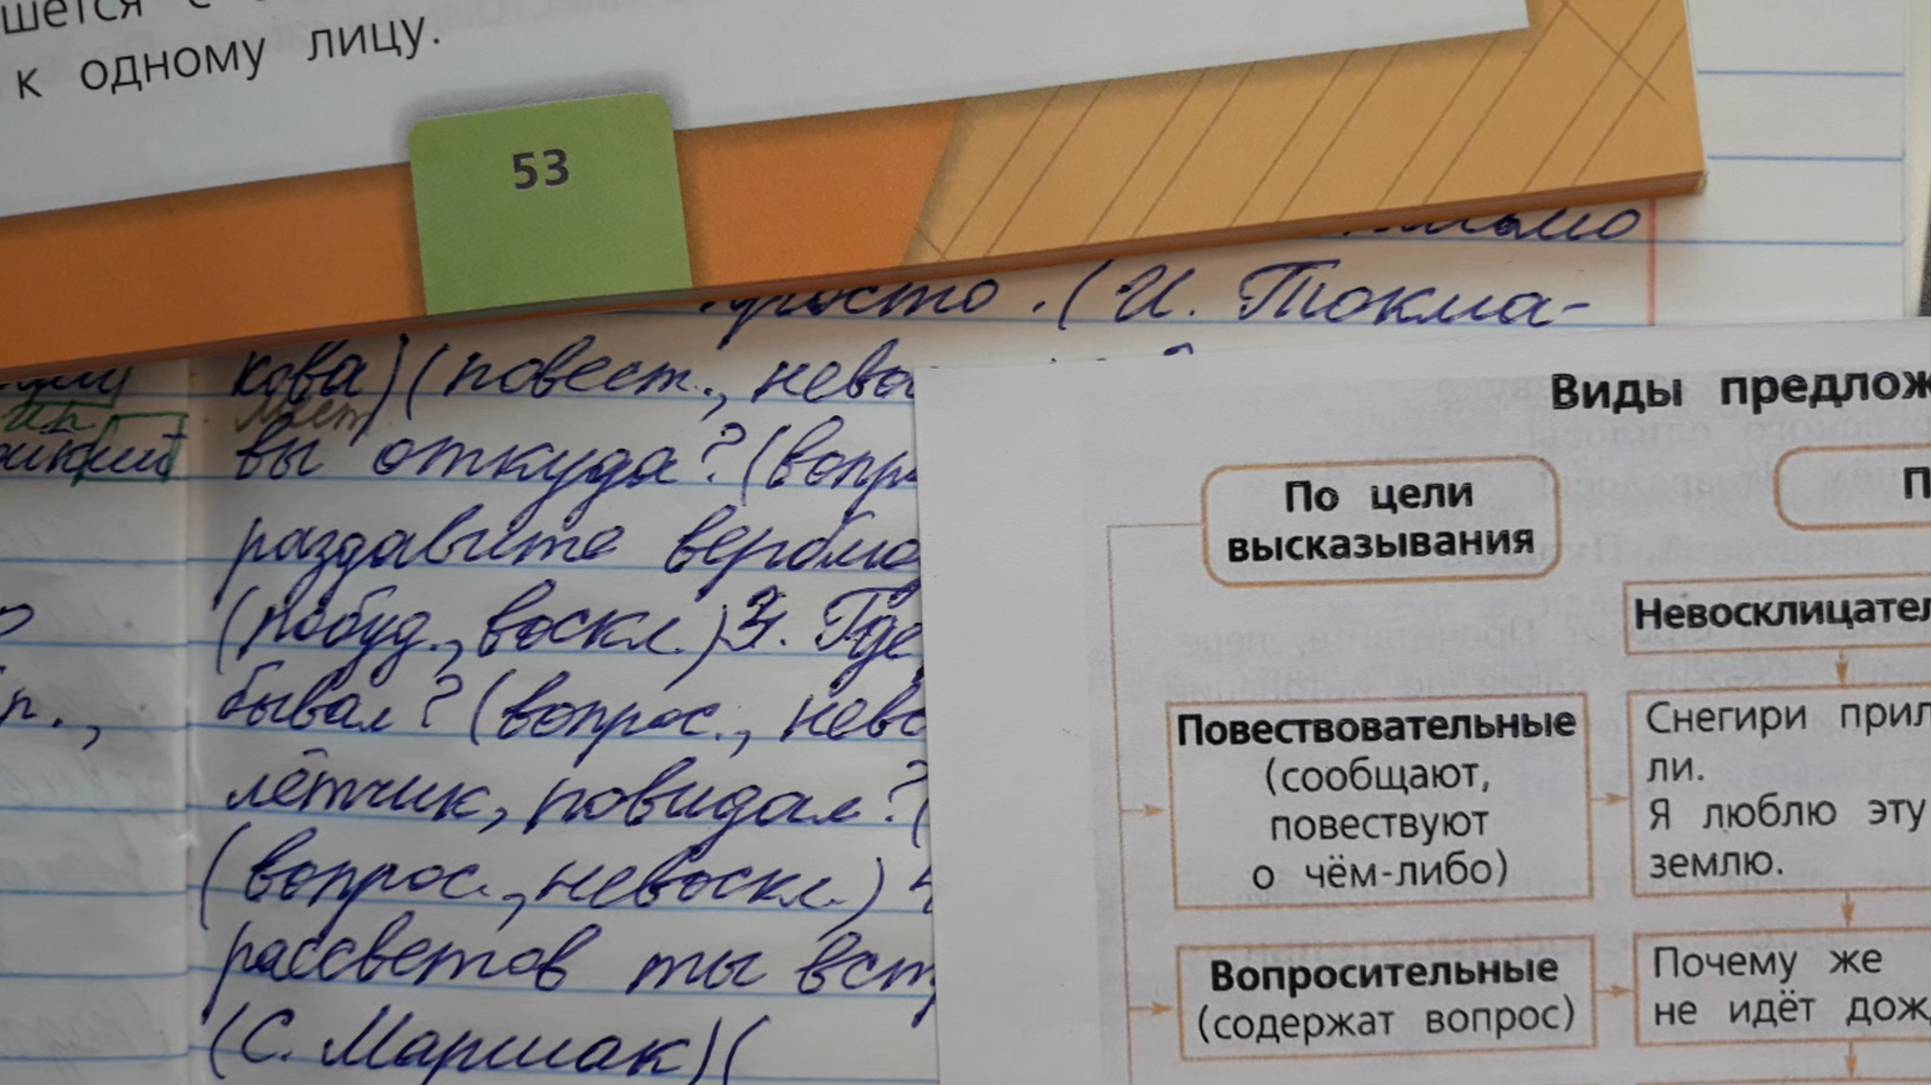 к одному лицу.
53
просто. (И. Токма-
кова) (повест., нево
вы откуда? (вопр
раздавите верблю
(побуд., воскл.) 3. Где
бывал? (вопрос., нево
лётчик, повидал? (
(вопрос., невоскл.)
рассветов ты вст
(С. Маршак) (
Виды предлож
По цели
высказывания
Невосклицател
Повествовательные
(сообщают,
повествуют
о чём-либо)
Снегири прил
ли.
Я люблю эту
землю.
Вопросительные
(содержат вопрос)
Почему же
не идёт дож